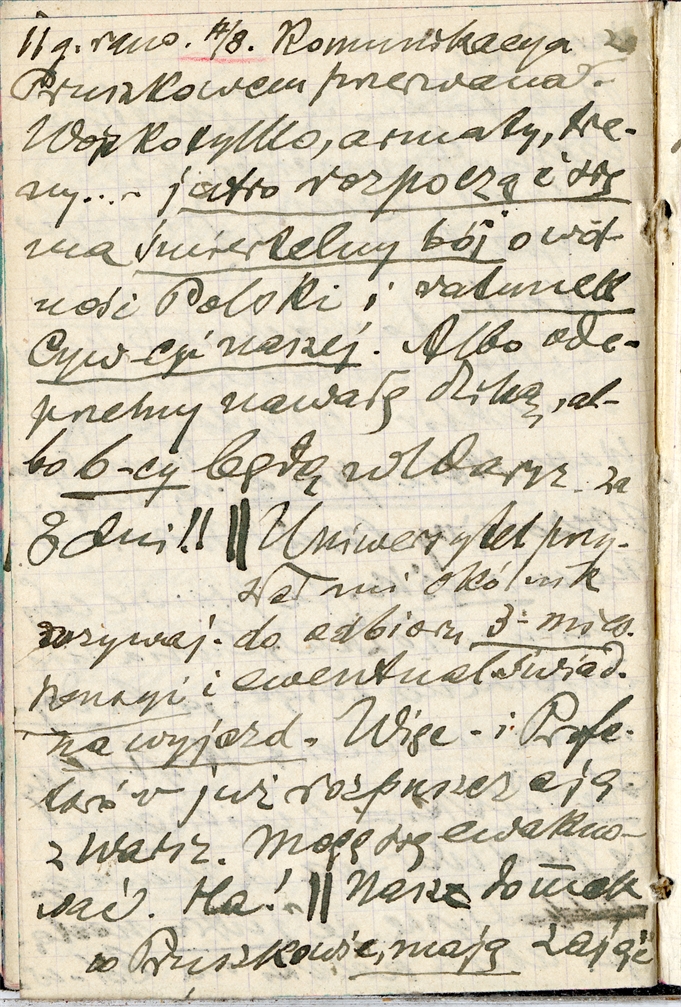 11 g. rano. 14/8. Komunikacya z
Pruszkowem przerwana.
Wojsko tylko, armaty, tre-
ny... - jutro rozpoczą się
ma śmiertelny bój o wol-
ność Polski i ratunek
Cyw-cyi naszej. Albo ode-
przemy nawałę dziką, al-
bo b-cy będą w Warsz. za
8 dni!! || Uniwersytet przy-
słał mi okólnik
wzywaj. do odbioru 3-mies.
pensyi i ewentual. świad.
na wyjazd. Więc - i Profe-
sorów już rozpuszczają
z Warsz. Mogę się ewakuo-
wać. Ha! || Nasz domek
w Pruszkowie, mają zająć